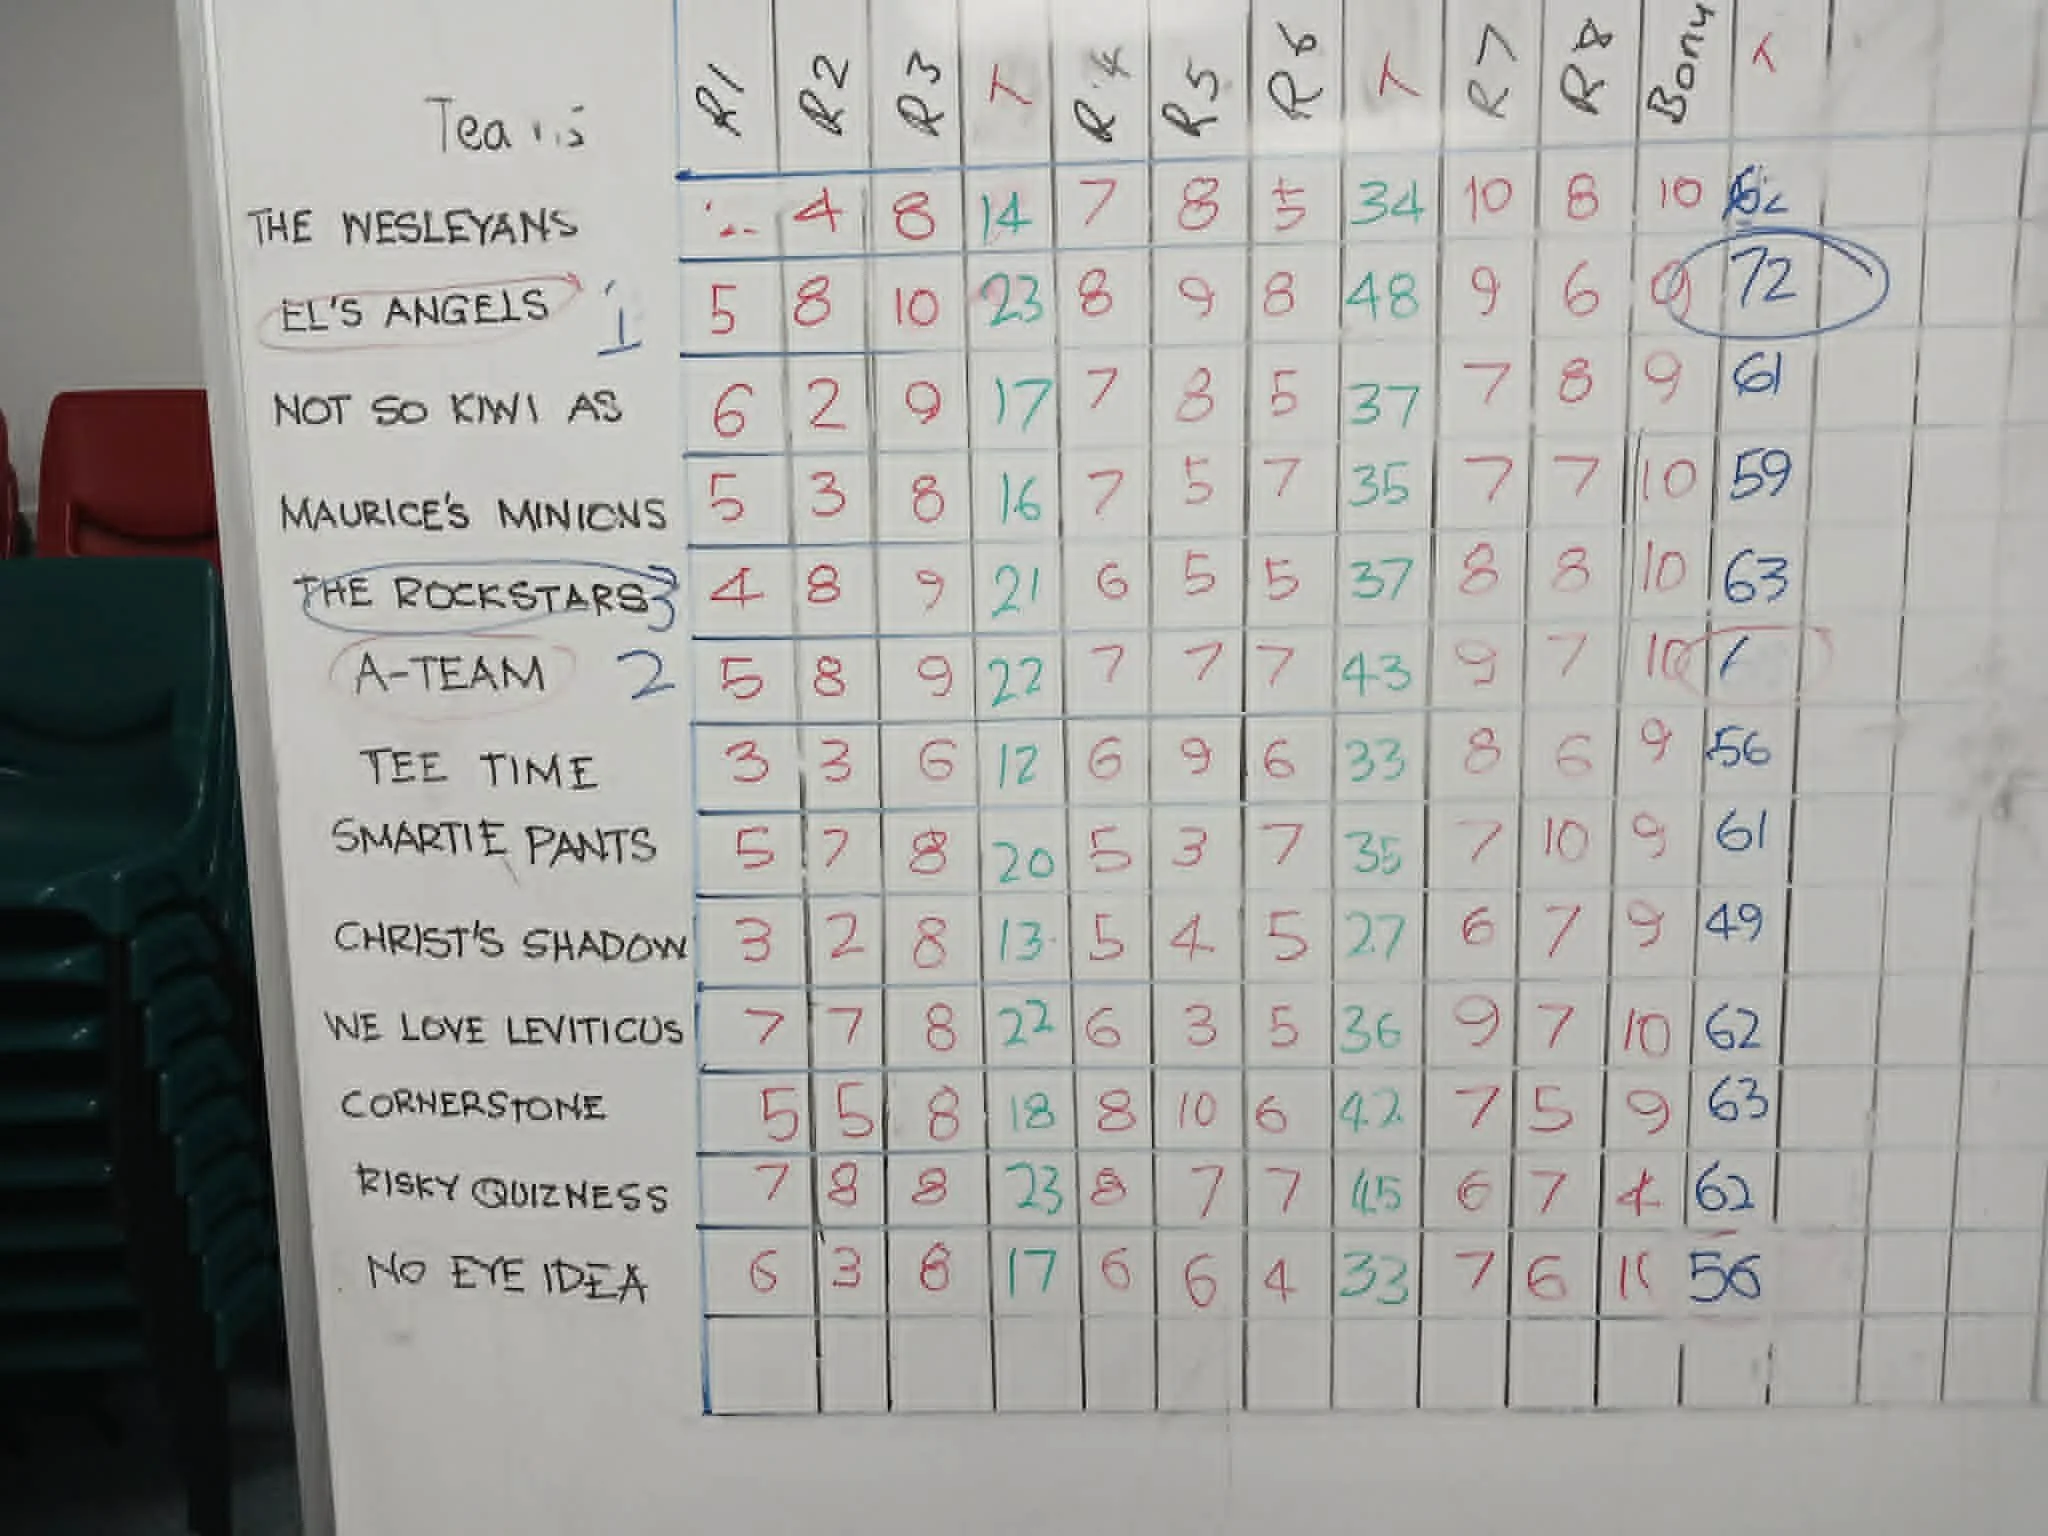 R1 R2 R3 T R4 R5 R6 T R7 R8 T
THE WESLEYANS 4 8 14 7 8 5 34 10 8 10
EL'S ANGELS 1 5 8 10 23 8 9 8 48 9 6 9 72
NOT SO KIWI AS 6 2 9 17 7 8 5 37 7 8 9 61
MAURICE'S MINIONS 5 3 8 16 7 5 7 35 7 7 10 59
THE ROCKSTARS 3 4 8 9 21 6 5 5 37 8 8 10 63
A-TEAM 2 5 8 9 22 7 7 7 43 9 7 10
TEE TIME 3 3 6 12 6 9 6 33 8 6 9 56
SMARTIE PANTS 5 7 8 20 5 3 7 35 7 10 9 61
CHRIST'S SHADOW 3 2 8 13 5 4 5 27 6 7 9 49
WE LOVE LEVITICUS 7 7 8 22 6 3 5 36 9 7 10 62
CORNERSTONE 5 5 8 18 8 10 6 42 7 5 9 63
RISKY QUIZNESS 7 8 8 23 8 7 7 45 6 7 4 62
NO EYE IDEA 6 3 8 17 6 6 4 33 7 6 56